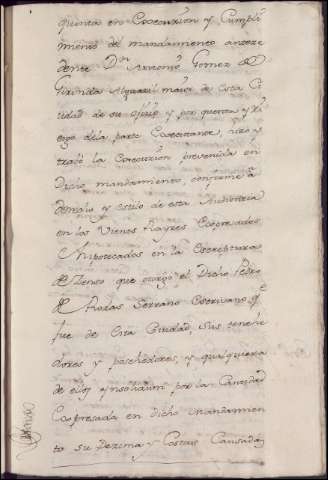 quinta en Execusion y Cumpli
miento de mandamiento antece
dente Dn Antonio Gomez de
Alguazil maior de esta Ci
udad de su y por quenta y Ri
esgo dela parte Executante, hizo y
trabó la Execusion prevenida en
Dicho mandamiento, conforme á
derecho y estilo de esta Audiencia
en los Vienes Raÿzes Expresados
é Hipotecados en la Escreptura
de Zenso que otorgó el Dicho Pedro
de Rodas Serrano Escrivano qe
fue de Esta Ciudad, sus tenene
dores y poseherdores, y qualquiera
de ellos ynsolidum por la Cantidad
Expresada en dicho Mandamien
to su Dezima y Costas Causadas